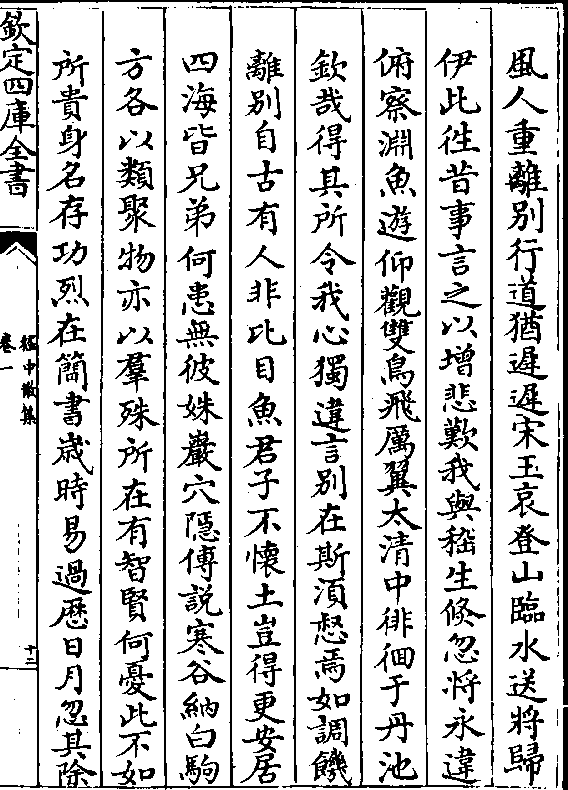 風人重離別行道猶遲遲宋玉哀登山臨水送將歸
伊此徃昔事言之以増悲歎我與嵇生倐忽將永違
俯察淵魚遊仰觀雙鳥飛厲翼太清中徘徊于丹池
欽哉得其所令我心獨違言別在斯湏惄焉如調饑
離別自古有人非比目魚君子不懷土豈得更安居
四海皆兄弟何患無彼姝巖穴隠傅説寒谷納白駒
方各以類聚物亦以羣殊所在有智賢何憂此不如
所貴身名存功烈在簡書嵗時易過歴日月忽其除
欽定四庫全書
嵇中散集
卷一
十二